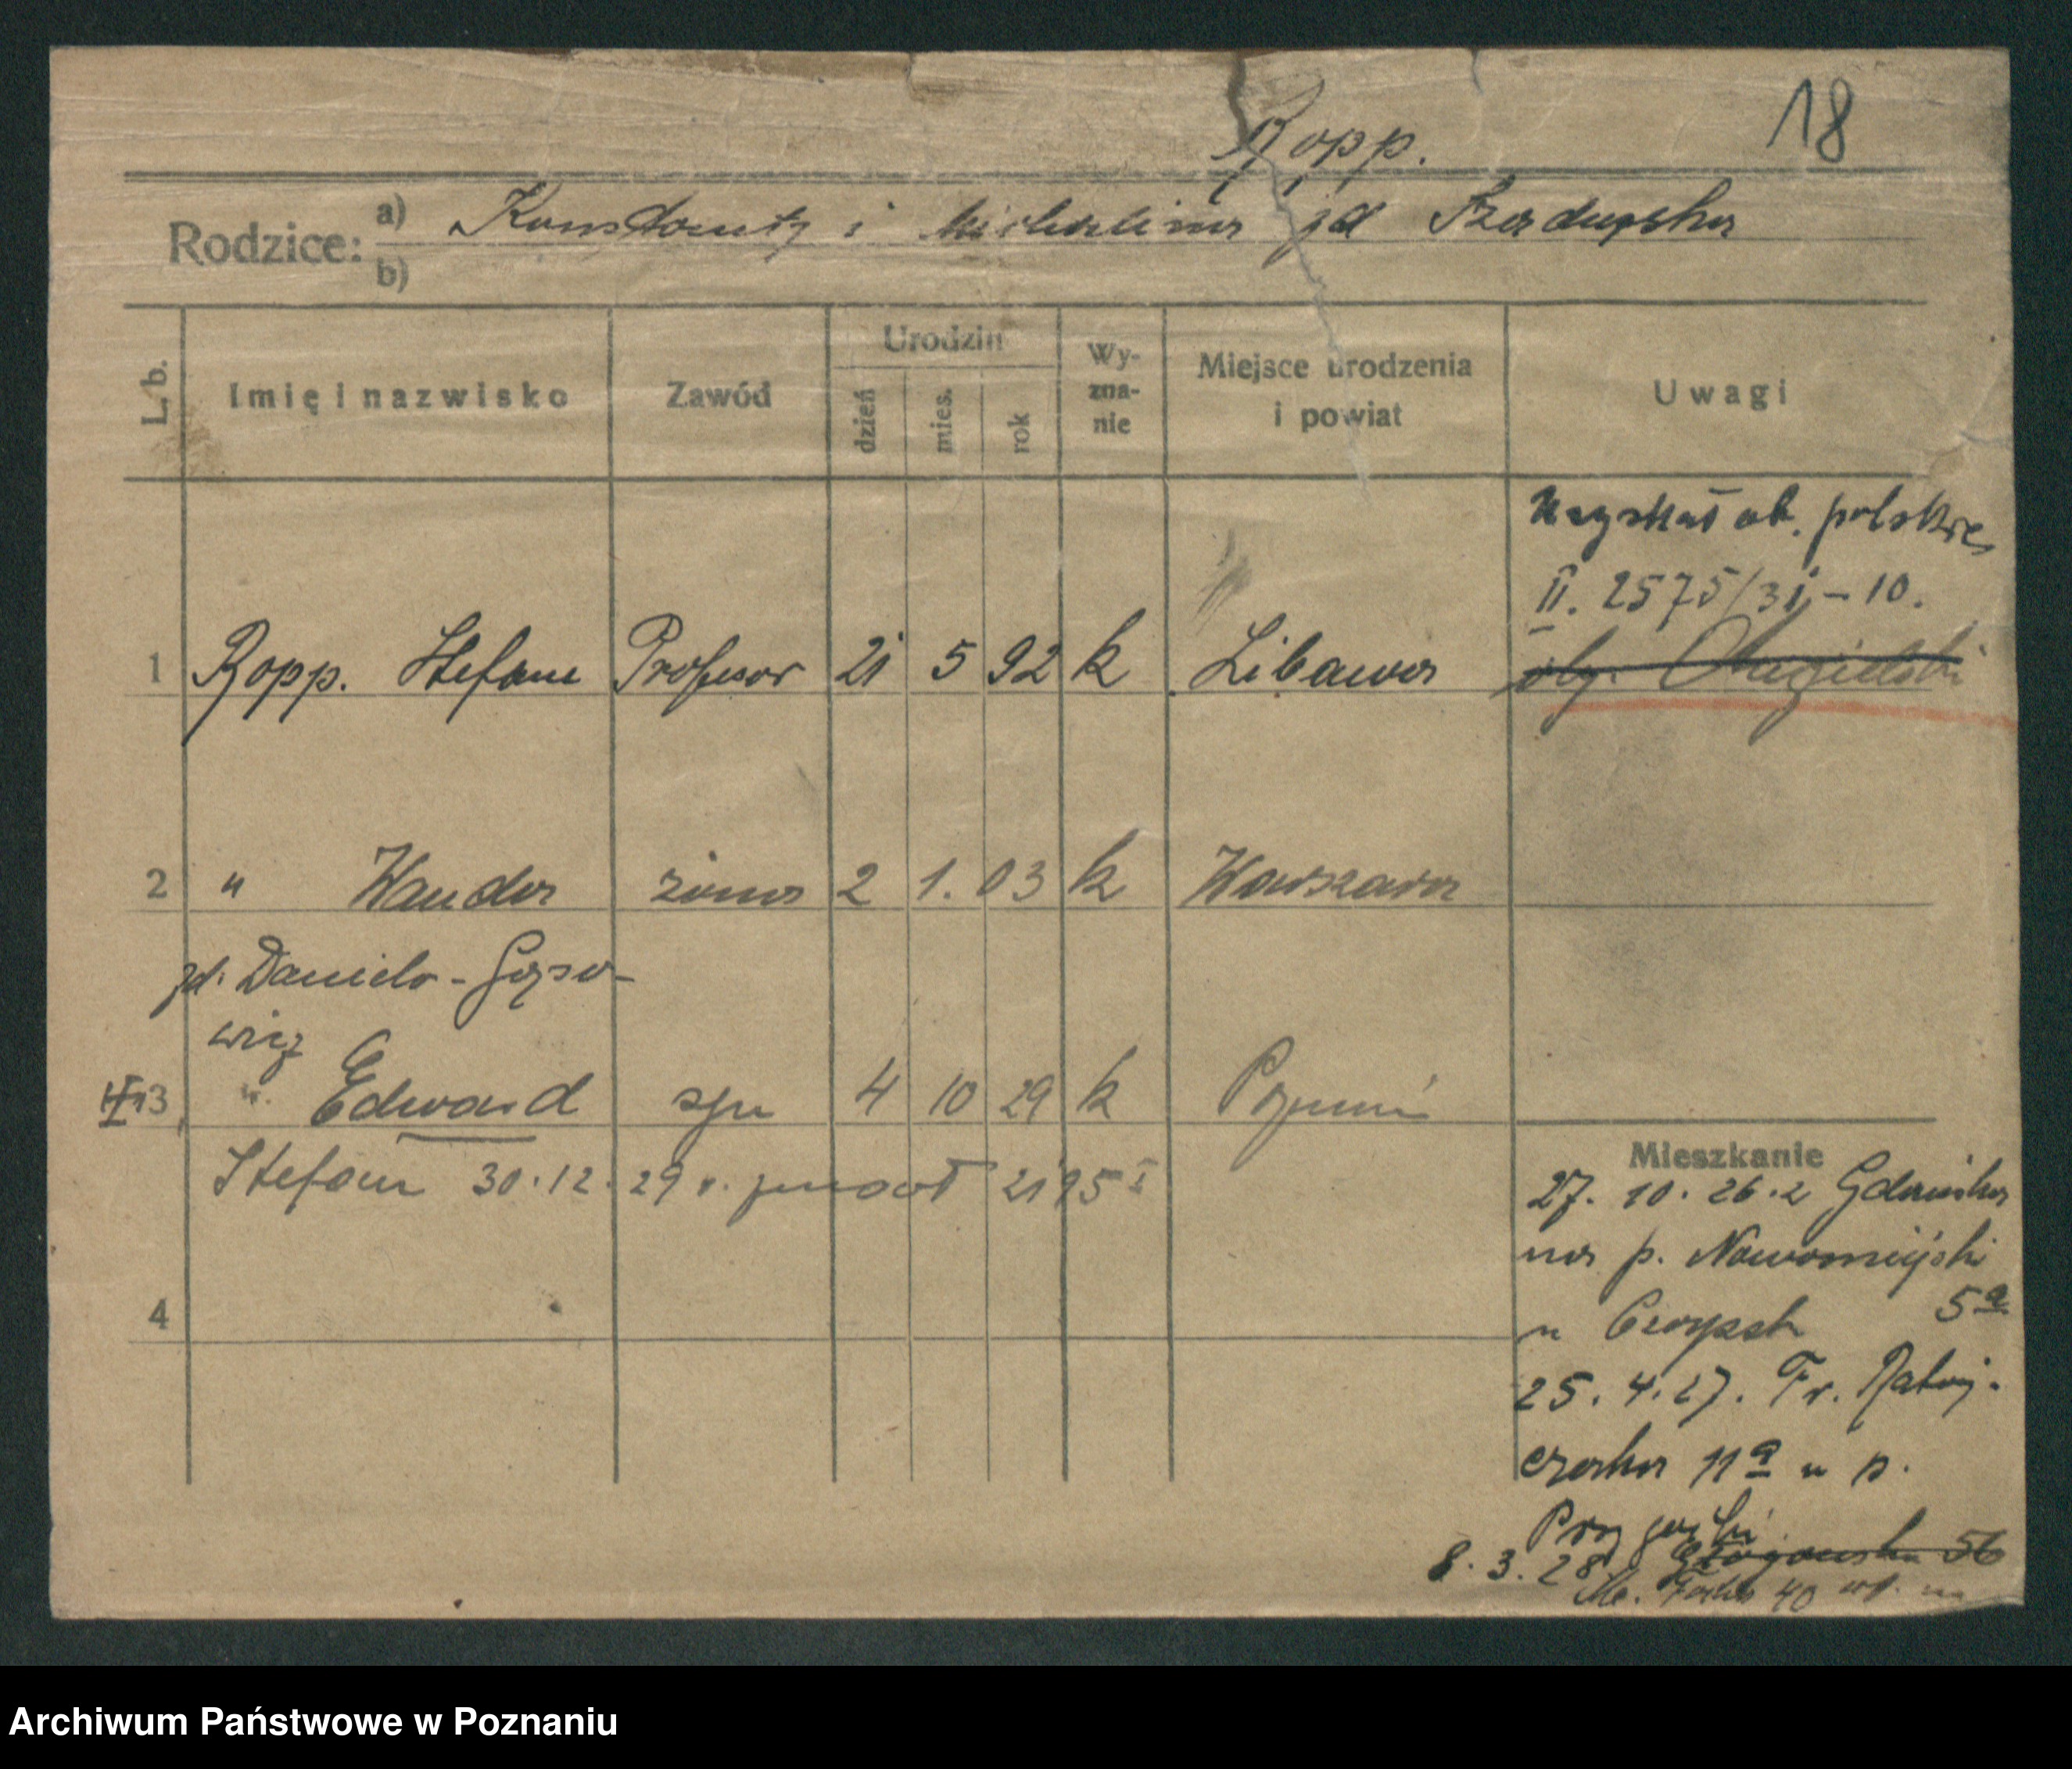 18
Ropp.
Rodzice: a) Konstanty i Michalina zd
b)
L. b. Imię i nazwisko Zawód Urodzin dzień mies. rok Wy-zna-nie Miejsce urodzenia i powiat Uwagi
Uzyskał ob. polskie
II. 2575/31 - 10.
1 Ropp. Stefan Profesor 21 5 92 k Libawa
2 " Wanda żona 2 1. 03 k Warszawa
zd. Daniło-
wicz
3 " Edward syn 4 10 29 k Poznań
Mieszkanie
Stefan 30.12.29 r.
27. 10. 26. z Gdańska
na p. Nowomiejski
5a
u
25. 4. 27. Fr. Rataj-
czaka 11a u p.
4
8. 3. 28. Głogowska 56
M. Focha 40
Archiwum Państwowe w Poznaniu